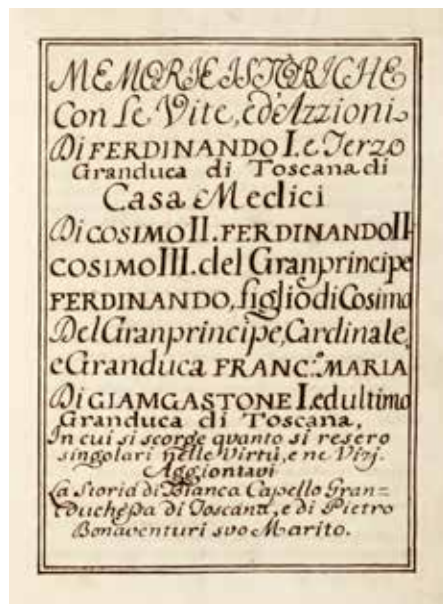 MEMORIE ISTORICHE
Con Le Vite, ed'Azzioni
Di FERDINANDO I. e Terzo
Granduca di Toscana di
Casa Medici
Di COSIMO II. FERDINANDO II.
COSIMO III. del Granprincipe
FERDINANDO, figlio di Cosimo
Del Granprincipe, Cardinale,
e Granduca FRANC.º MARIA
Di GIAMGASTONE I. ed ultimo
Granduca di Toscana,
In cui si scorge quanto si resero
singolari nelle Virtù, e ne Vizj.
Aggiontavi
La Storia di Bianca Capello Gran=
duchessa di Toscana, e di Pietro
Bonaventuri suo Marito.